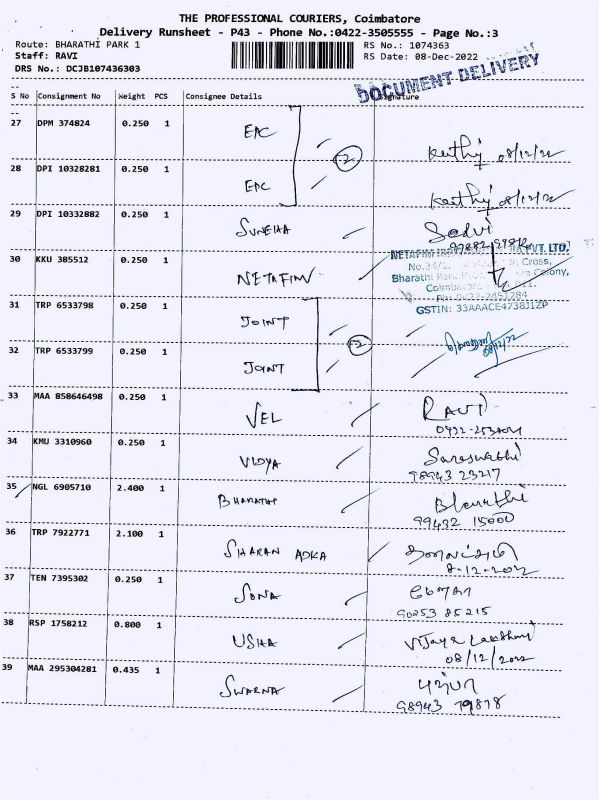 THE PROFESSIONAL COURIERS, Coimbatore
Delivery Runsheet - P43 - Phone No.:0422-3505555 - Page No.:3
Route: BHARATHI PARK 1 RS No.: 1074363
Staff: RAVI RS Date: 08-Dec-2022
DRS No.: DCJB107436303
DOCUMENT DELIVERY
S No Consignment No Weight PCS Consignee Details Signature
27 DPM 374824 0.250 1 EAC
Karthi 08/12/22
28 DPI 10328281 0.250 1 EAC
Karthi 08/12/22
29 DPI 10332882 0.250 1 SUNEHA
30 KKU 385512 0.250 1 NETAFIM
PVT. LTD.
Cross,
Bharathi Colony,
GSTIN: 33AAACE4738J1ZP
31 TRP 6533798 0.250 1 JOINT
32 TRP 6533799 0.250 1 JOINT
08/12/22
33 MAA 858646498 0.250 1 VEL RAVI
34 KMU 3310960 0.250 1 VIDYA Sareswathi
98943 23217
35 NGL 6905710 2.400 1 BHARATHI Bharathi
99432 15000
36 TRP 7922771 2.100 1 SHARAN ADKA
8-12-2022
37 TEN 7395302 0.250 1 SONA
90253 85215
38 RSP 1758212 0.800 1 USHA Vijaya Lakshmi
08/12/2022
39 MAA 295304281 0.435 1 SWARNA
98943 79878